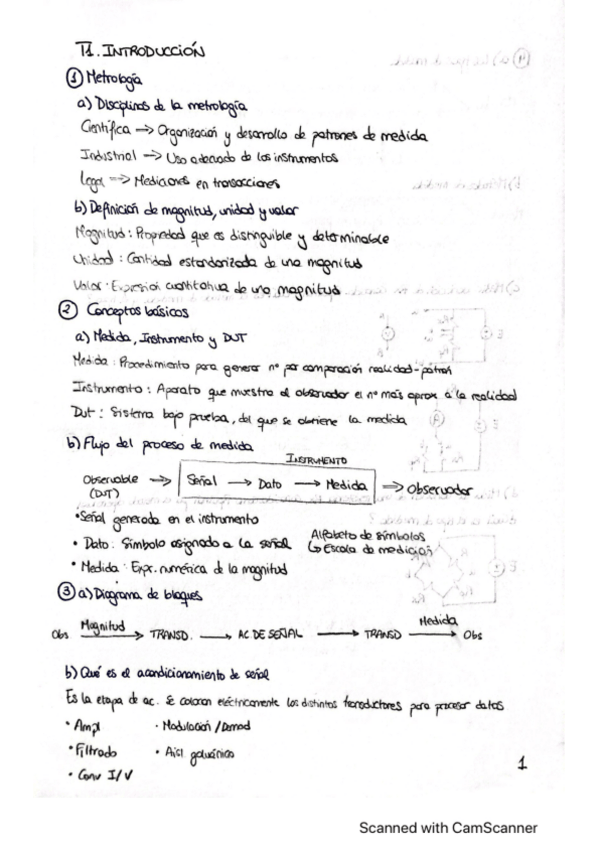 T1. INTRODUCCIÓN
① Metrología
a) Disciplinas de la metrología
Científica → Organización y desarrollo de patrones de medida
Industrial → Uso adecuado de los instrumentos
Legal → Mediciones en transacciones
b) Definición de magnitud, unidad y valor
Magnitud: Propiedad que es distinguible y determinable
Unidad: Cantidad estandarizada de una magnitud
Valor: Expresión cuantitativa de una magnitud
② Conceptos básicos
a) Medida, Instrumento y DUT
Medida: Procedimiento para generar nº por comparación realidad-patrón
Instrumento: Aparato que muestra al observador el nº más aprox a la realidad
Dut: Sistema bajo prueba, del que se obtiene la medida
b) Flujo del proceso de medida
INSTRUMENTO
Observable (DUT) → Señal → Dato → Medida → Observador
• Señal generada en el instrumento
• Dato: Símbolo asignado a la señal
Alfabeto de símbolos
↳ Escala de medición
• Medida: Expr. numérica de la magnitud
③ a) Diagrama de bloques
Obs Magnitud → TRANSD. → AC DE SEÑAL → TRANSD Medida → Obs
b) Qué es el acondicionamiento de señal
Es la etapa de ac. Se colocan eléctricamente los distintos transductores para procesar datos
• Ampl
• Modulación / Demod
• Filtrado
• Aisl galvánico
• Conv I/V
1
Scanned with CamScanner